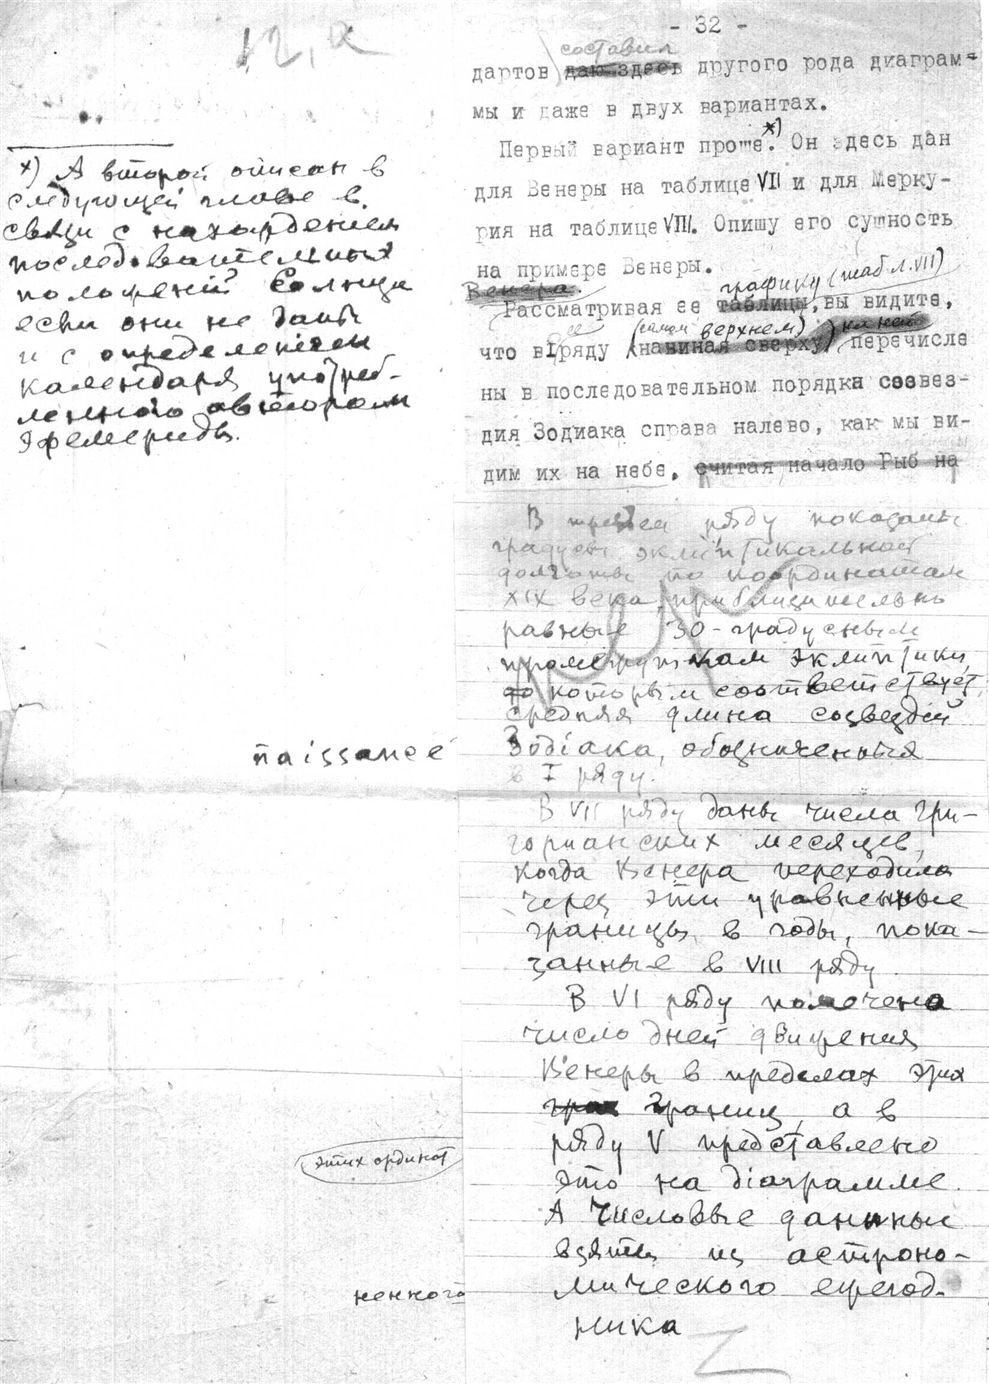 12,а
- 32 -
составил
дартов даю здесь другого рода диаграм-
мы и даже в двух вариантах.
Первый вариант проще.*) Он здесь дан
для Венеры на таблице VII и для Мерку-
рия на таблице VIII. Опишу его сущность
на примере Венеры.
Венера.
графику (табл. VII)
Рассматривая ее таблицы, вы видите,
ее (самом верхнем) на ней
что в I ряду (начиная сверху) перечисле
ны в последовательном порядке созвез-
дия Зодиака справа налево, как мы ви-
дим их на небе, считая начало Рыб на
x) А второй описан в
следующей главе в
связи с нахождением
последовательных
положений Солнца
если они не даны
и с определением
календаря, употреб-
ленного автором
эфемериды.
В третьем ряду показаны
градусы эклиптикальной
долготы по координатам
XIX века, приблизительно
равные 30-градусным
промежуткам эклиптики,
которым соответствует
средняя длина созвездий
Зодіака, обозначенных
в I ряду.
В VII ряду даны числа гри-
горианских месяцев,
когда Венера переходила
через эти уравненные
границы в годы, пока-
занные в VIII ряду.
В VI ряду помечено
число дней движения
Венеры в пределах этих
границ, а в
ряду V представлено
это на діаграмме.
А числовые данные
взяты из астроно-
мического ежегод-
ника
naissance
этих ординат
ненного